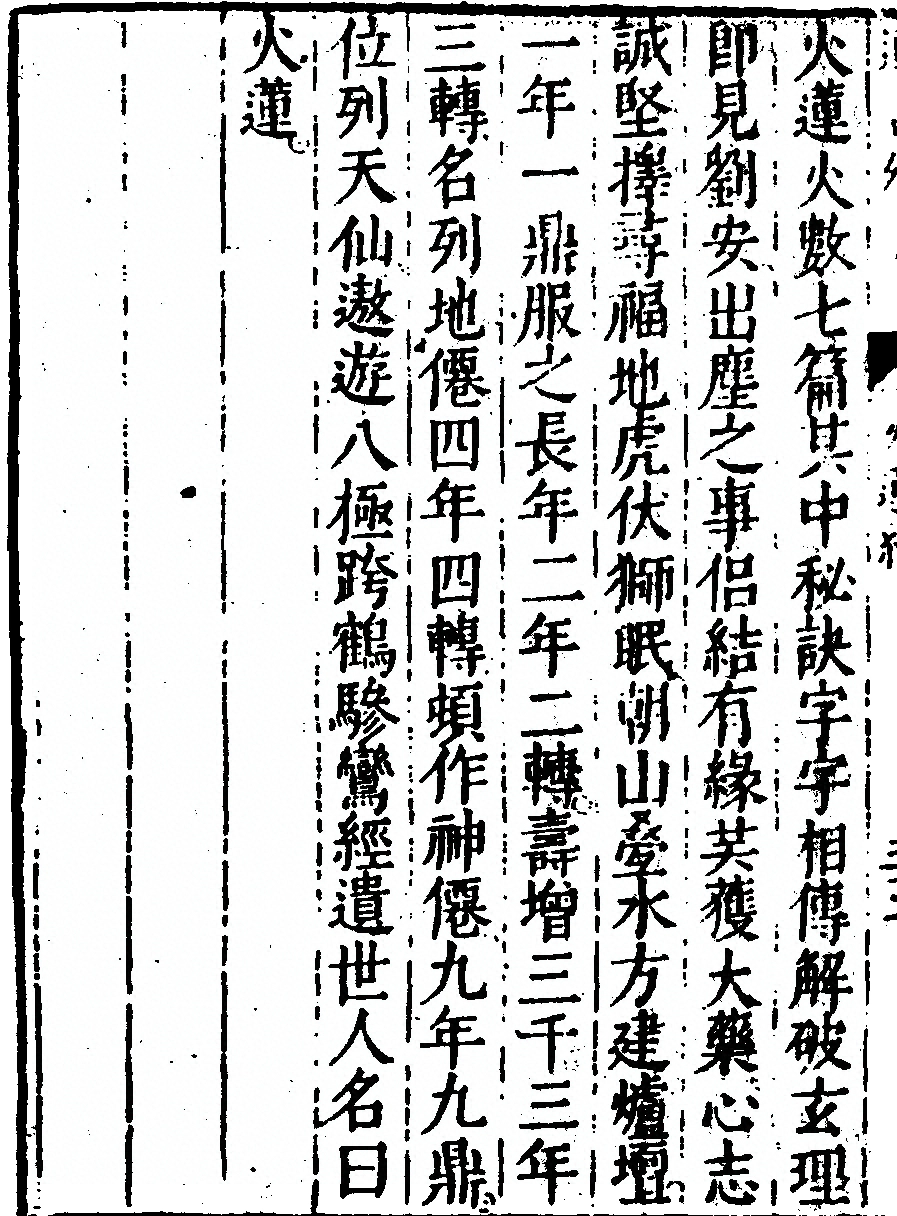 火蓮火數七篇其中秘訣字字相傳解破玄理
即見劉安出塵之事侶結有緣芙獲大藥心志
誠堅擇尋福地虎伏獅眠朝山愛水方建爐壇
一年一鼎服之長年二年二轉壽增三千三年
三轉名列地僊四年四轉頓作神僊九年九鼎
位列天仙遨遊八極跨鶴驂鸞經遺世人名曰
火蓮